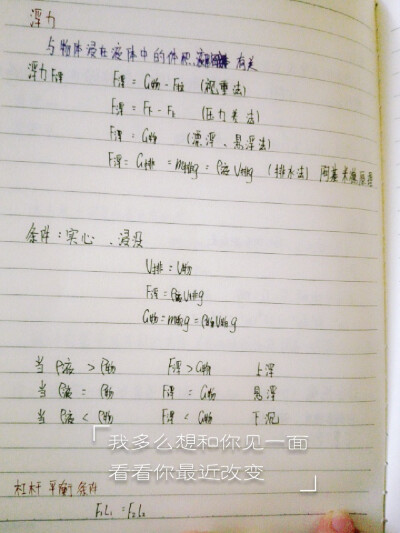 浮力
与物体浸在液体中的体积、液体 有关
浮力 F浮 F浮 = G物 - F拉 (视重法)
F浮 = F下 - F上 (压力差法)
F浮 = G物 (漂浮、悬浮法)
F浮 = G排 = m排g = ρ液V排g (排水法) 阿基米德原理
条件:实心、浸没
V排 = V物
F浮 = ρ液V排g
G物 = m物g = ρ物V物g
当 ρ液 > ρ物 F浮 > G物 上浮
当 ρ液 = ρ物 F浮 = G物 悬浮
当 ρ液 < ρ物 F浮 < G物 下沉
「我多么想和你见一面
看看你最近改变」
杠杆平衡条件
F₁L₁ = F₂L₂